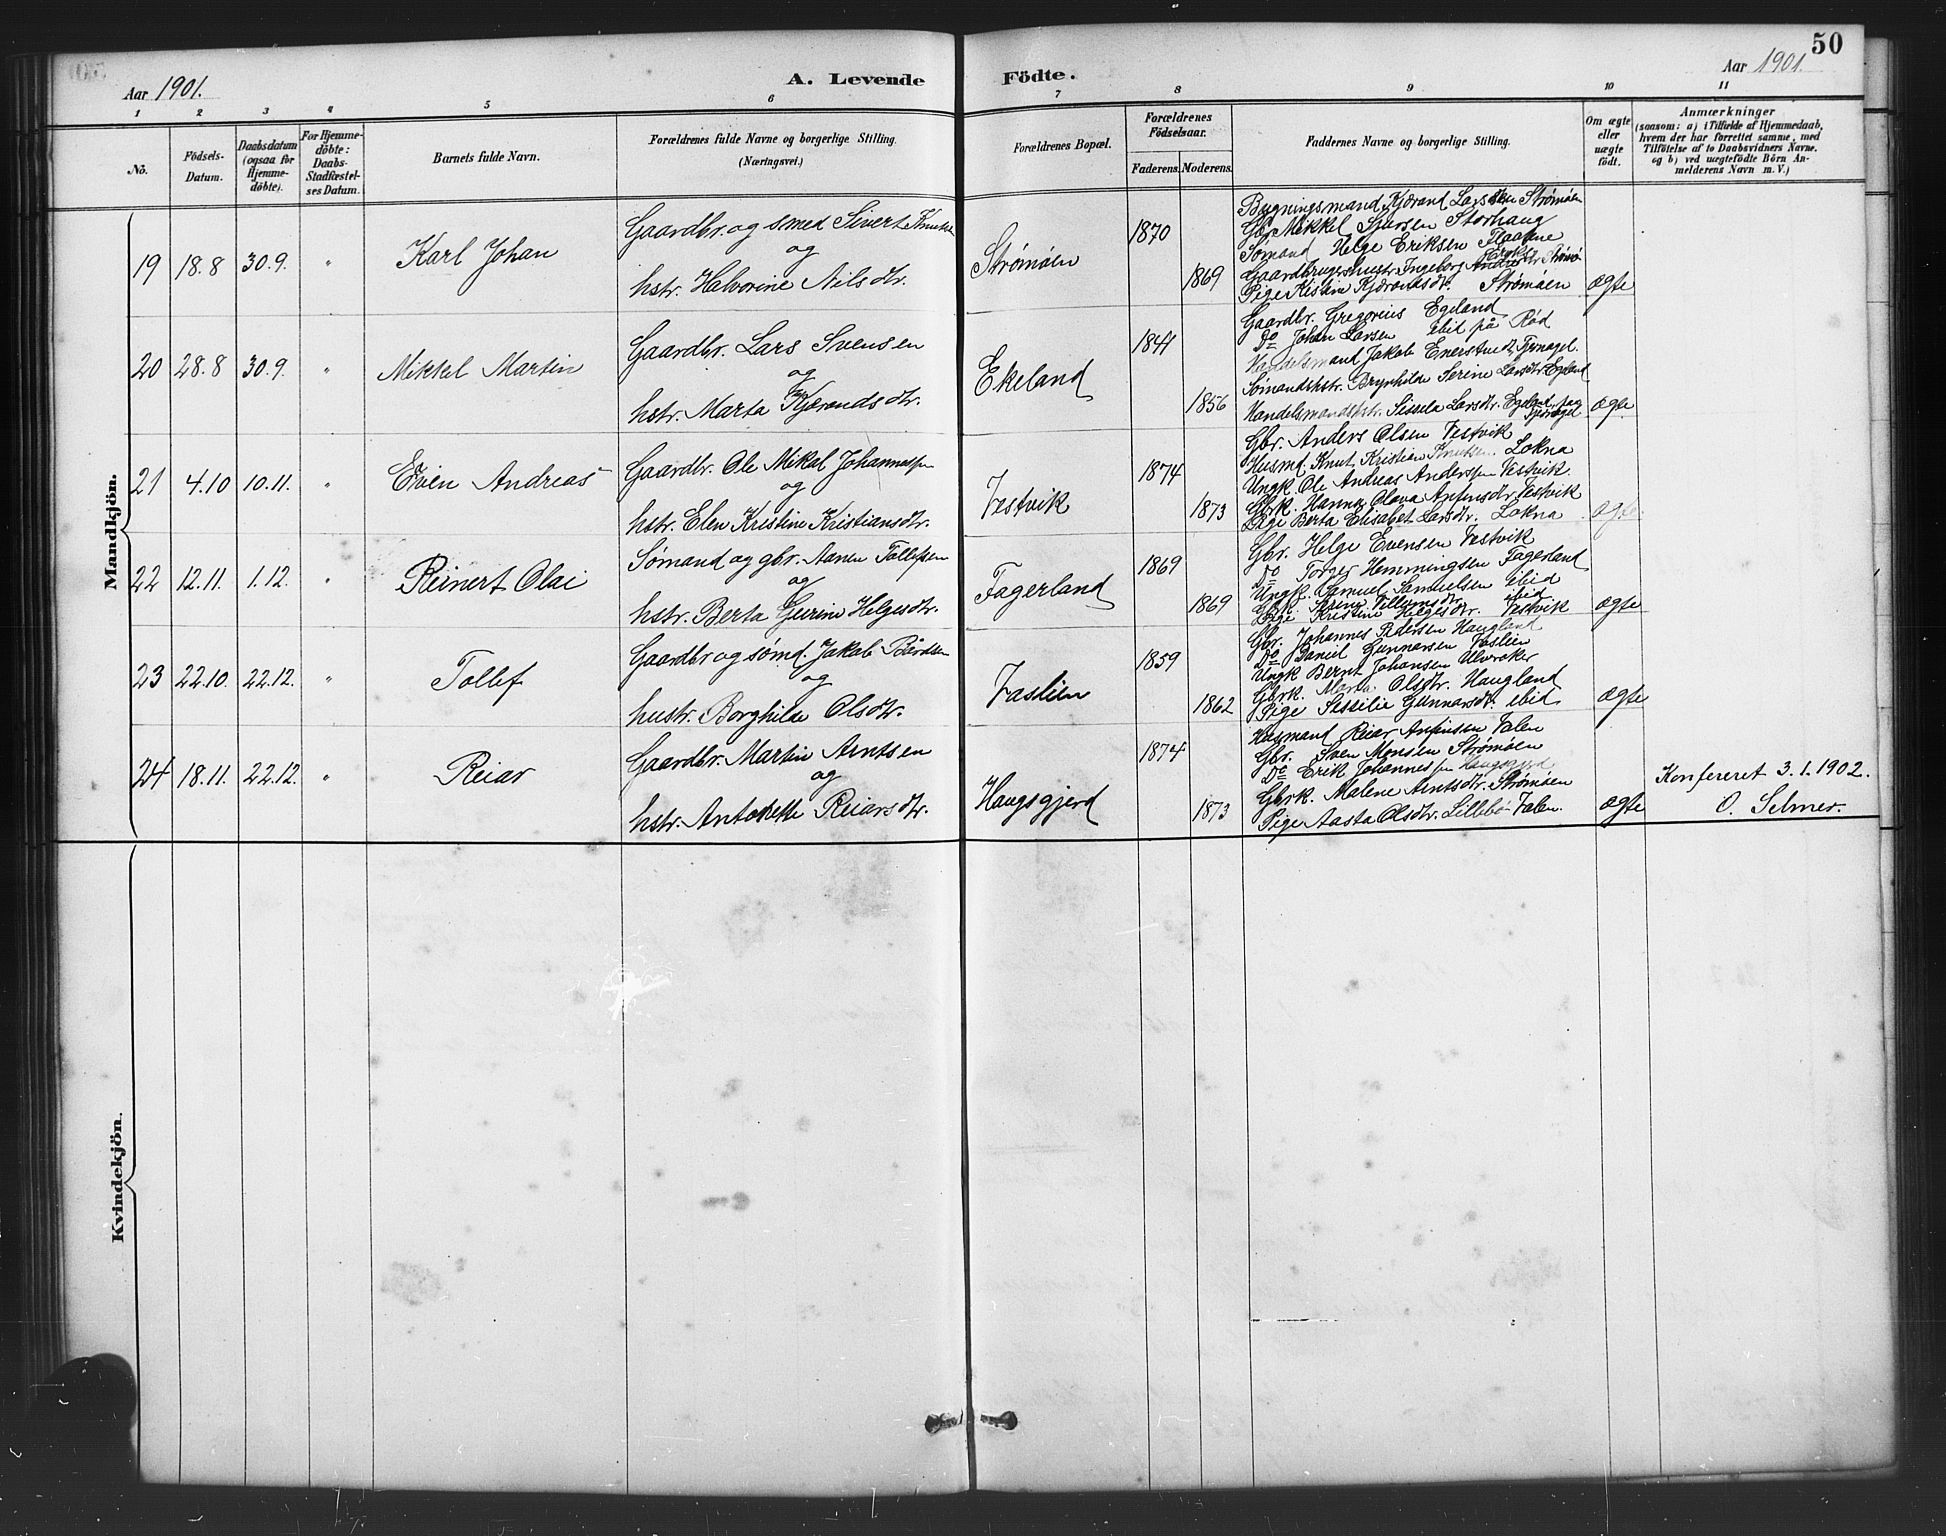 50
Aar 1901.
A. Levende Födte.
Aar 1901.
1 2 3 4 5 6 7 8 9 10 11
No.
Fødsels-Datum.
Daabsdatum (ogsaa for Hjemme-døbte).
For Hjemme-döbte: Daabs-Stadfæstel-ses Datum.
Barnets fulde Navn.
Forældrenes fulde Navne og borgerlige Stilling.
(Næringsvei.)
Forældrenes Bopæl.
Forældrenes Födselsaar.
Faderens. Moderens.
Faddernes Navne og borgerlige Stilling.
Om ægte eller uægte födt.
Anmærkninger
(saasom: a) i Tilfælde af Hjemmedaab,
hvem der har forrettet samme, med
Tilföielse af to Daabsvidners Navne,
og b) ved uægtefödte Börn An-
melderens Navn m. V.)
Mandkjön.
19 18.8 30.9. " Karl Johan
Gaardbr. og smed Sivert Knutsen
og
hstr. Halvorine Nilsdtr.
Strømøen
1870
1869
Bygningsmand Kjærand Larssen Strømøen
Gbr. Mikkel Sjursen Storhaug
Sømand Helge Eriksen
Gaardbrugerhustr. Ingeborg
Pige Kistine Kjærandsdtr. Strømøen
ægte
20 28.8 30.9. " Mikkel Martin
Gaardbr. Lars Svensen
og
hstr. Marta Kjærandsdtr.
Ekeland
1841
1856
Gaardbr. Gregorius Egeland
Do Johan Larsen ibid på Rød
Handelsmand Jakob
Sømandshstr. Brynhilde Serine Larsdtr. Egeland
Handelsmandshstr. Sissela Larsdtr.
ægte
21 4.10 10.11. " Even Andreas
Gaardbr. Ole Mikal Johannessen
og
hstr. Elen Kristine Kristiansdtr.
Vestvik
1874
1873
Gbr. Anders Olsen Vestvik
Husmd. Knut Kristian Knutsen Lokna
Ungk. Ole Andreas Anderssen Vestvik
Gbrk. Hanna Olava Vestvik
Pige Berta Elisabet Larsdtr. Lokna
ægte
22 12.11. 1.12. " Reinert Olai
Sømand og gbr. Aanen Tollefsen
og
hstr. Berta Gurine Helgesdtr.
Fagerland
1869
1869
Gbr. Helge Evensen Vestvik
Do Torger Hemmingsen Fagerland
Ungk. Samuel Samuelsen ibid
Gbrk. Serina ibid
Pige Kristine Helgesdtr. Vestvik
ægte
23 22.10. 22.12. " Tollef
Gaardbr. og sømd. Jakob Bårdsen
og
hustr. Borghilde Olsdtr.
Vaslien
1859
1862
Gbr. Johannes Pedersen Haugland
Do Daniel Gunnarsen Vaslien
Ungk Bernt Johansen Ulveraker
Gbrk. Marta Olsdtr. Haugland
Pige Sessilie Gunnarsdtr. ibid
ægte
24 18.11. 22.12. " Reiar
Gaardbr. Martin Arntsen
og
hstr. Antonette Reiarsdtr.
Haugsgjerd
1874
1873
Husmand Reiar Valen
Gbr. Sven Monsen Strømøen
Do Erik Johannessen Haugsgjerd
Gbrk. Malene Arntsdtr. Strømøen
Pige Aasta Olsdtr. Lillebø Valen.
ægte
Konfereret 3.1.1902.
O. Selmer.
Kvindekjön.